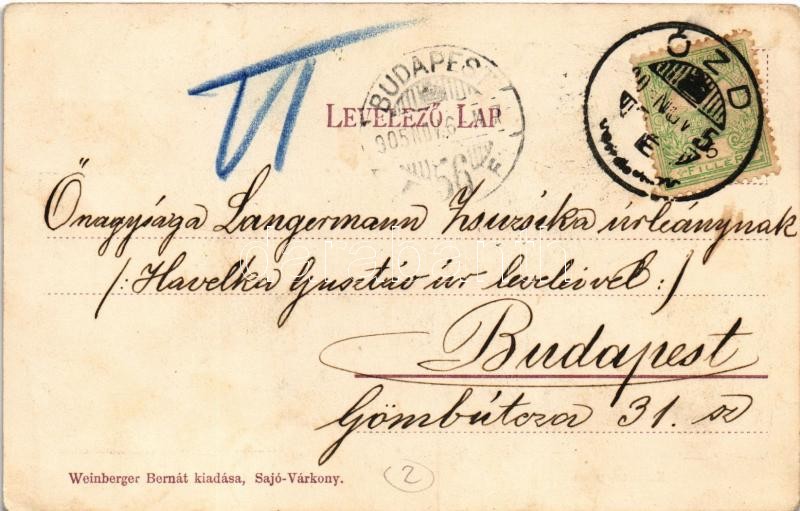 VI
BUDAPEST
905 NOV. 6
56
LEVELEZŐ LAP
ÓZD
FILLÉR
Őnagysága Langermann Zsuzsika úrleánynak
/: Havelka Gusztáv úr levelével :/
Budapest
Gömbútcza 31. sz
Weinberger Bernát kiadása, Sajó-Várkony.
2